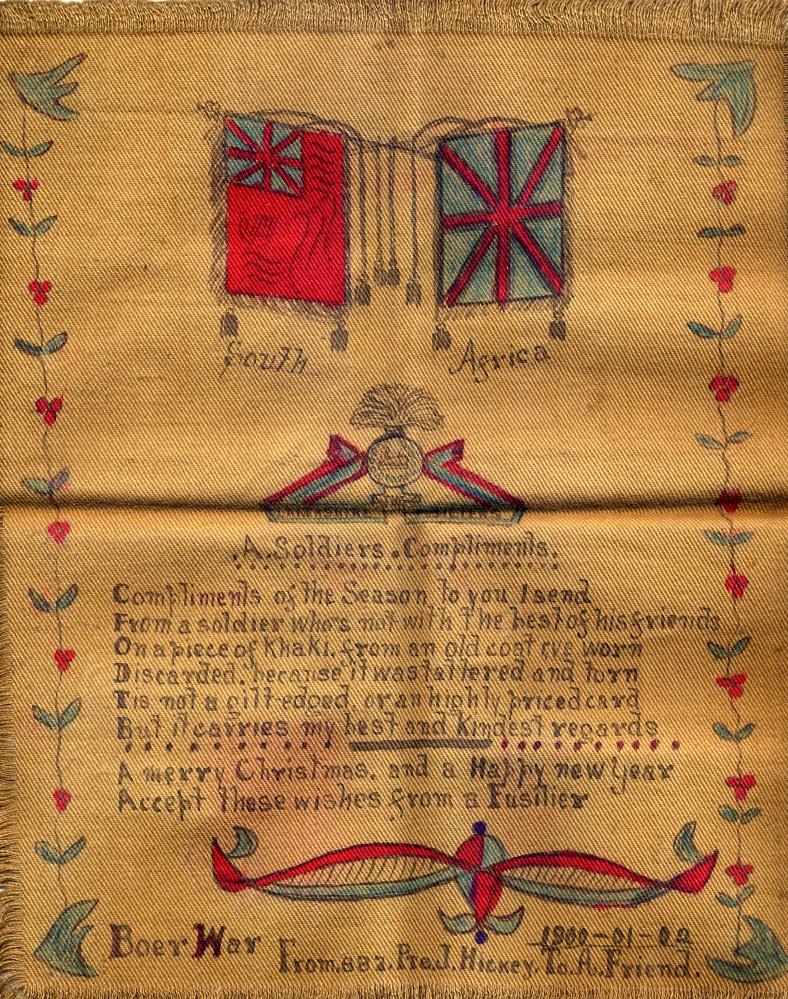 South Africa
.A.Soldiers.Compliments.
Compliments of the Season to you I send
From a soldier who's not with the best of his friends
On a piece of Khaki, from an old coat I've worn
Discarded, because it was tattered and torn
Tis not a gilt edged, or an highly priced card
But it carries my best and Kindest regards
A merry Christmas, and a Happy new Year
Accept these wishes from a Fusilier
Boer War
1900-01-02
From.882.Pte.J.Hickey.To.A.Friend.